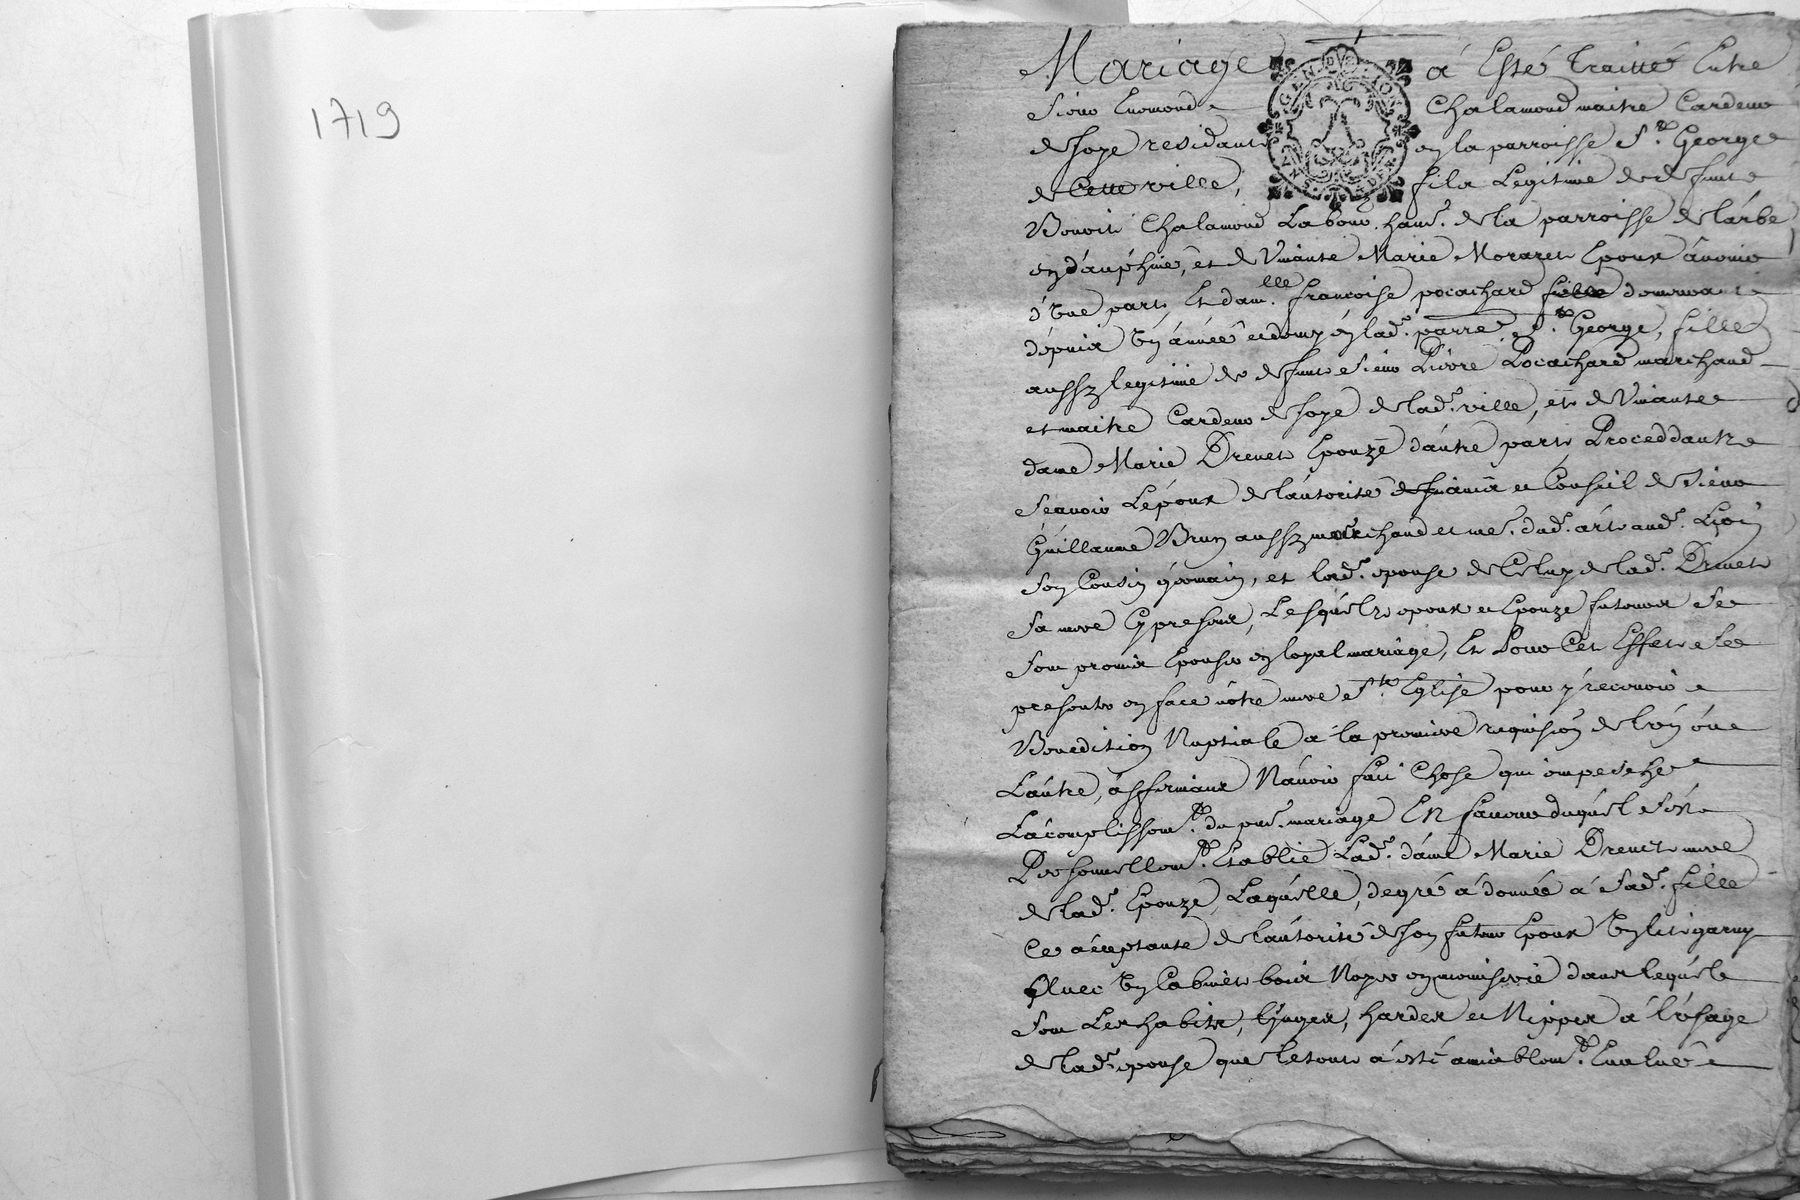 1719
Mariage à Esté Traitté Entre
sieur Enemond Chalamond maitre Cardeur
de soye residant en la parroisse St. George
de Cette ville, fils Legitime de defunt
Benoit Chalamond Labour. hant. de la parroisse de
en dauphiné, et de vivante Marie Moraret Epoux avenir
d'une part, Et dam.lle francoise pocachard demeurante
depuis un année en lad. parre. St. George, fille
aussy legitime de defunt sieur Pierre Pocachard marchand
et maitre Cardeur de soye de lad. ville, et de vivante
dame Marie Drevet Epouze d'autre part, Proceddants
scavoir L'epoux de l'autorité et Conseil de sieur
Guillaume Brun aussy marchand et me. dud. art aud. Lyon
son Cousin germain, et lad. epouse de Celuy de lad. Drevet
sa mere Cy presente, Lesquels epoux et Epouze futeurs se
sont promis Epouser en loyal mariage, Et Pour Cet Effet se
presenter en face nôtre mere Ste. Eglise pour y recevoir
Benediction Nuptiale a la premiere requision de l'un ou
L'autre, affirmant N'avoir fait Chose qui empesche
L'acomplissem.t du pnt. mariage EN faveur duquel s'est
Personnellem.t Etablie Lad. dame Marie Drevet mere
de lad. Epouze, Laquelle, de gré a donnée à sad. fille
Ce acceptante de l'autorité de son futeur Epoux un lit garny
Avec un Cabinet bois Noyer en menuiserie dans lequel
sont Les habits, linges, hardes et Nippes à l'usage
de lad. epouse que le tout a esté amiablem.t Evalué